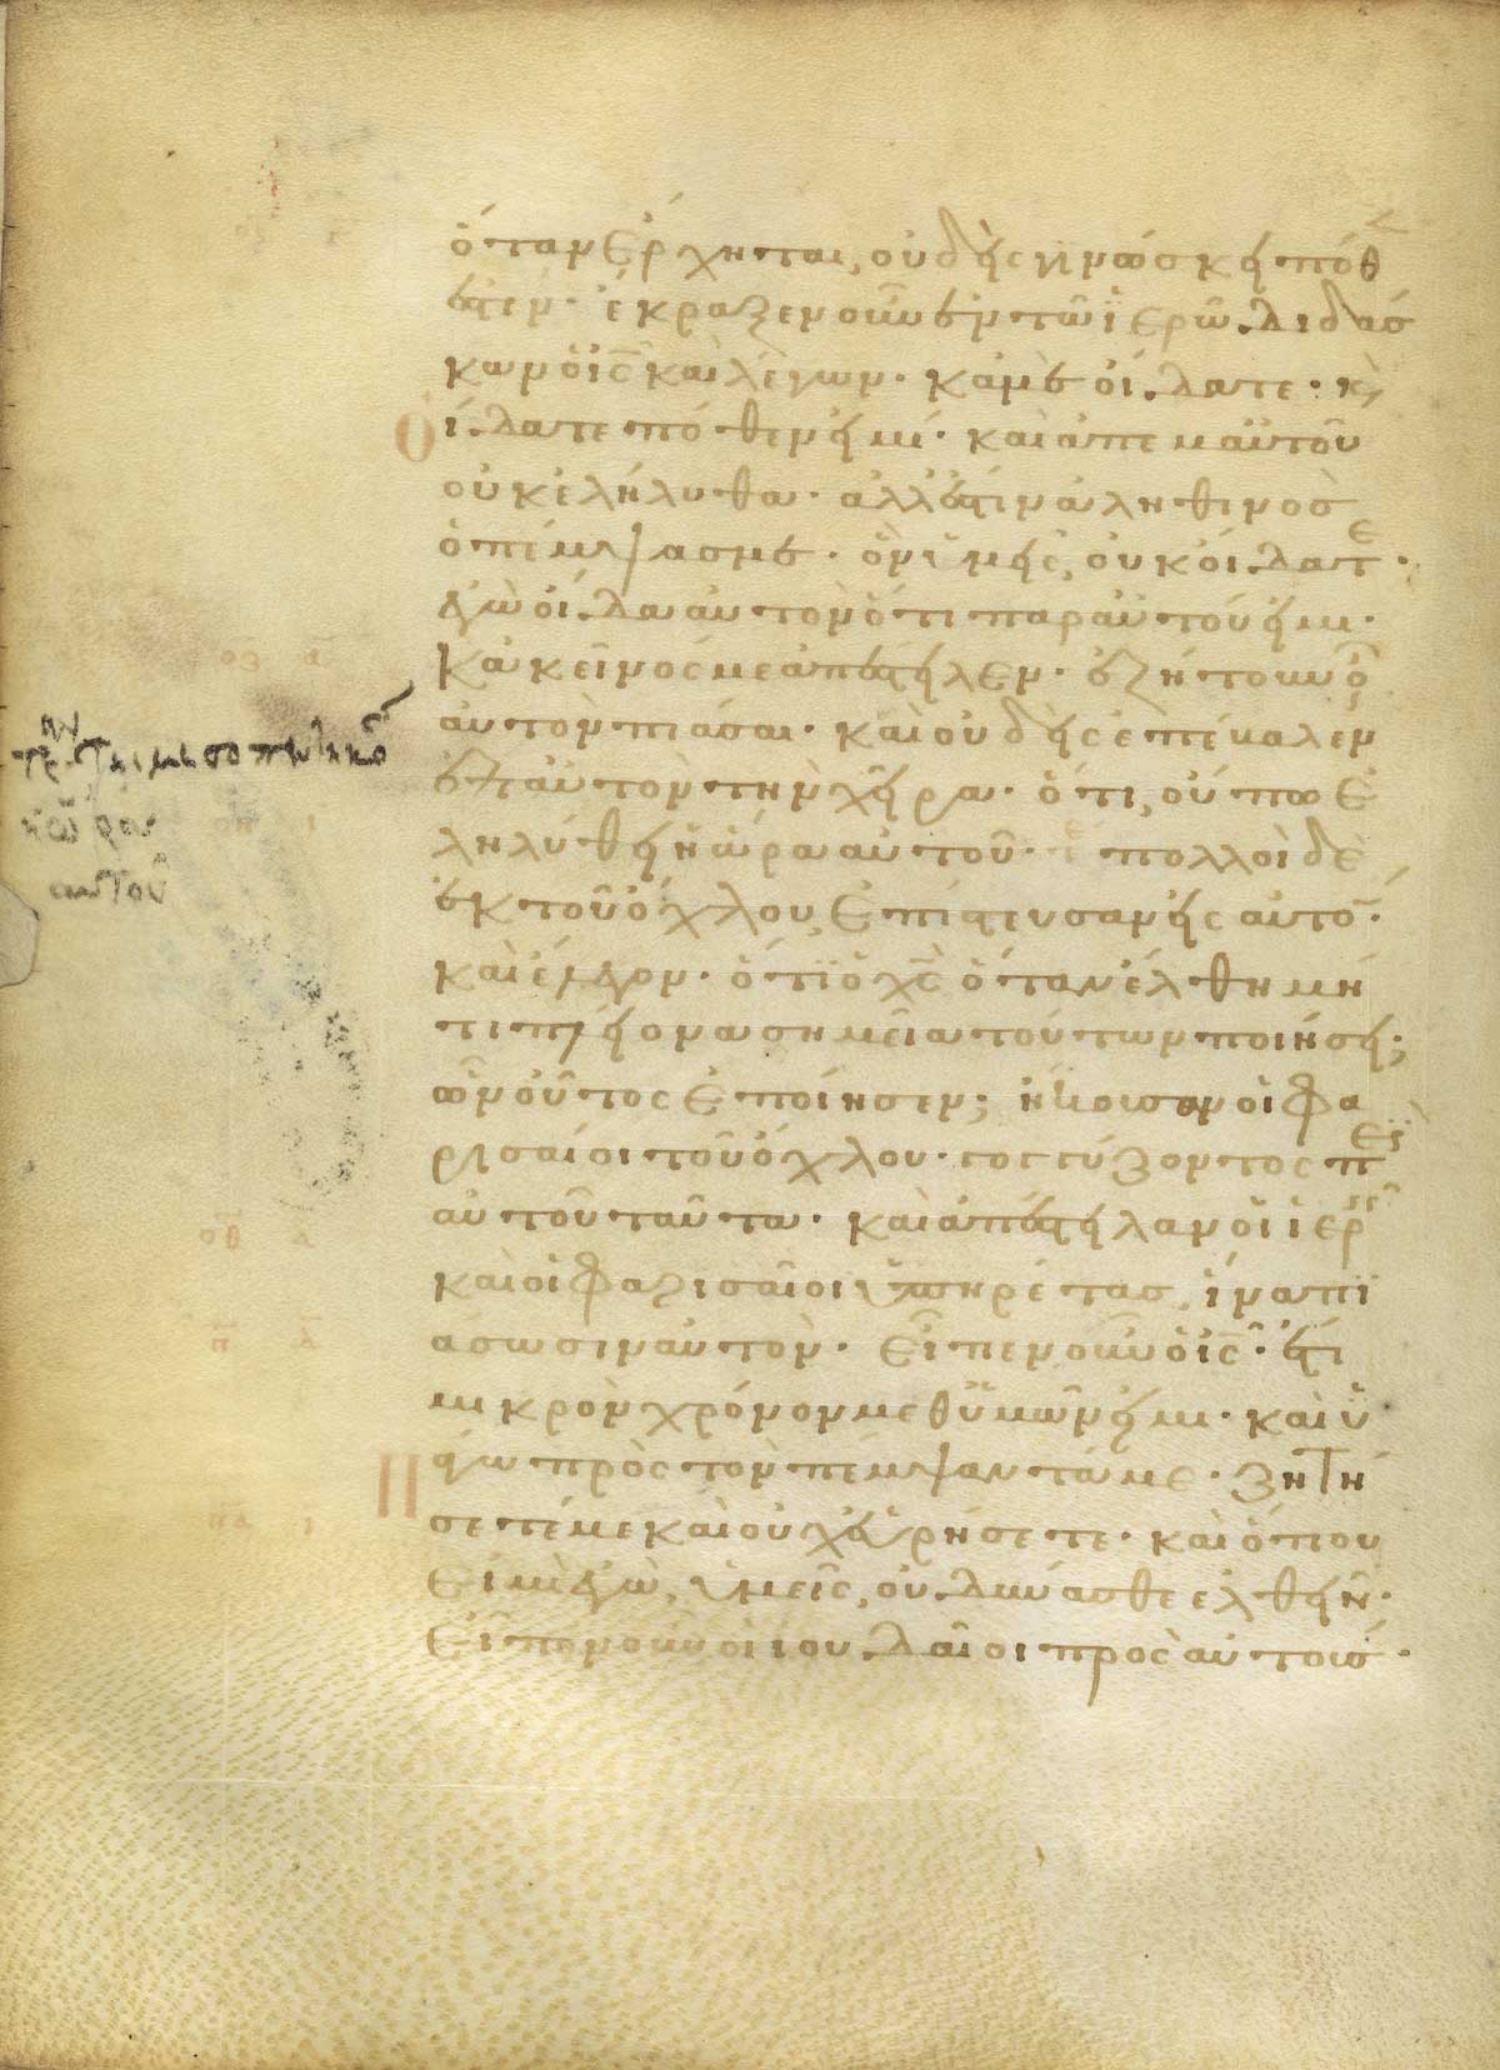 ὅταν ἔρχηται, οὐδεὶς γινώσκει πόθ
ἐστιν· ἔκραξεν οὖν ἐν τῶ ἱερῶ διδάσ
κων ὁ ις̅ καὶ λέγων· κἀμὲ οἴδατε· κ̀
οἴδατε πόθεν εἰμί· καὶ ἀπ' ἐμαυτοῦ
οὐκ ἐλήλυθα· ἀλλ' ἔστιν ἀληθινὸσ
ὁ πέμψασ με· ὃν ὑμεῖς, οὐκ οἴδατε·
ἐγὼ οἶδα αὐτὸν ὅτι παρ' αὐτού εἰμι·
κἀκεῖνός με ἀπέστειλεν· ἐζήτουν ὀ͂
αὐτὸν πιάσαι· καὶ οὐδεὶς ἐπέβαλεν
ἐπ' αὐτὸν τὴν χεῖρα· ὅτι, οὔπω ἐ
ληλύθει ἡ ὥρα αὐτοῦ· πολλοὶ δὲ
ἐκ τοῦ ὄχλου, ἐπίστευσαν εἰς αὐτό·
καὶ ἔλεγον· ὅτι ὁ χς̅ ὅταν ἔλθη μή
τι πλείονα σημεῖα τούτων ποιήσει;
ὧν οὗτος ἐποίησεν; ἤκουσαν οἱ φα
ρισαίοι τοῦ ὄχλου· γογγύζοντος πε̣ὶ
αὐτοῦ ταῦτα· καὶ ἀπέστειλαν οἱ ἱερεῖς
καὶ οἱ φαρισαῖοι ὑπηρέτας, ἵνα πι
άσωσιν αὐτὸν· εἶπεν οὖν ὁ ις̅· ἔτι
μικρὸν χρόνον μεθ' ὑμῶν εἰμι· καὶ ὑ
πάγω πρὸς τὸν πέμψαντά με· ζητή
σετέ με καὶ οὐχ εὑρήσετε· καὶ ὅπου
εἰμὶ ἐγὼ, ὑμεῖς, οὐ δύνασθε ἐλθεῖν·
εἶπον οὖν οἱ ἰουδαῖοι πρὸς αὐτούσ·